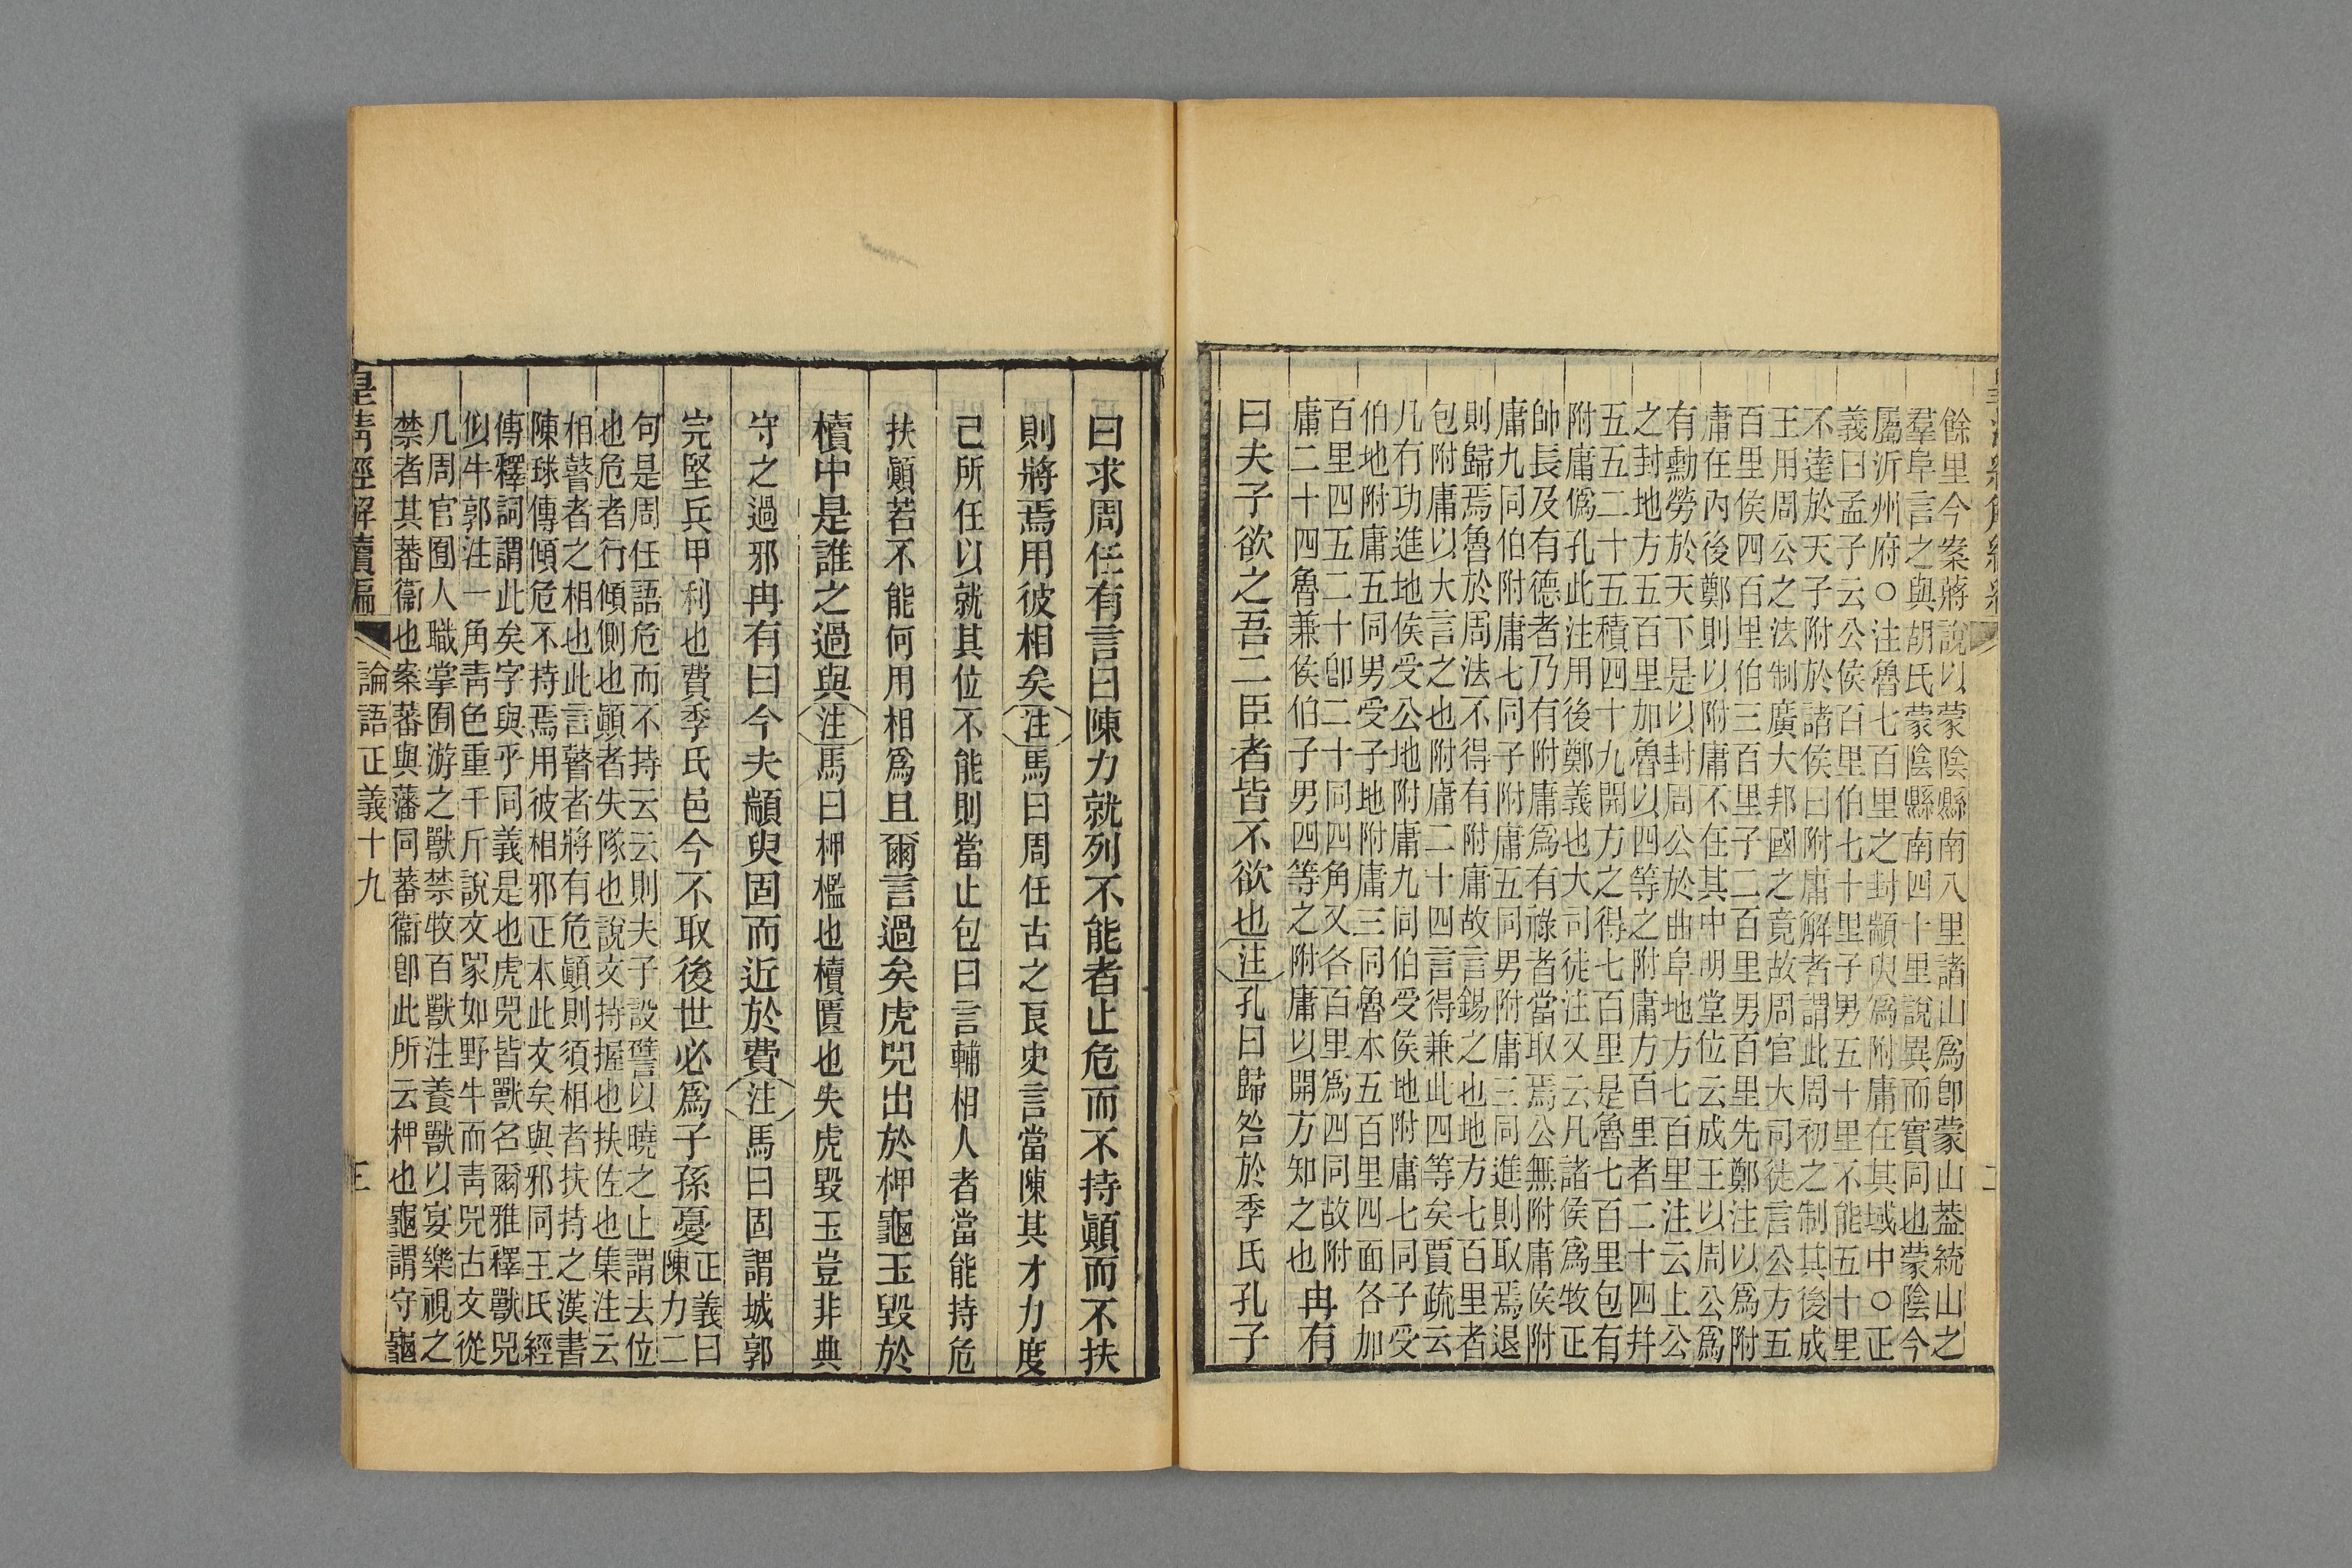 餘里今案蔣說以蒙陰縣南八里諸山爲卽蒙山葢統山之
羣阜言之與胡氏蒙陰縣南四十里說異而實同也蒙陰今
屬沂州府○注魯七百里之封顓臾爲附庸在其域中○正
義曰孟子云公侯百里伯七十里子男五十里不能五十里
不達於天子附於諸侯曰附庸解者謂此周初之制其後成
王用周公之法制廣大邦國之竟故周官大司徒言公方五
百里侯四百里伯三百里子二百里男百里先鄭注以爲附
庸在內後鄭則以附庸不在其中明堂位云成王以周公爲
有勳勞於天下是以封周公於曲阜地方七百里注云上公
之封地方五百里加魯以四等之附庸方百里者二十四幷
五五二十五積四十九開方之得七百里是魯七百里包有
附庸僞孔此注用後鄭義也大司徒注又云凡諸侯爲牧正
帥長及有德者乃有附庸爲有祿者當取焉公無附庸侯附
庸九同伯附庸七同子附庸五同男附庸三同進則取焉退
則歸焉魯於周法不得有附庸故言錫之也地方七百里者
包附庸以大言之也附庸二十四言得兼此四等矣賈疏云
凡有功進地侯受公地附庸九同伯受侯地附庸七同子受
伯地附庸五同男受子地附庸三同魯本五百里四面各加
百里四五二十卽二十同四角又各百里爲四同故附
庸二十四魯兼侯伯子男四等之附庸以開方知之也
冉有
曰夫子欲之吾二臣者皆不欲也注孔曰歸咎於季氏孔子
曰求周任有言曰陳力就列不能者止危而不持顚而不扶
則將焉用彼相矣注馬曰周任古之良史言當陳其才力度
己所任以就其位不能則當止包曰言輔相人者當能持危
扶顚若不能何用相爲且爾言過矣虎兕出於柙龜玉毀於
櫝中是誰之過與注馬曰柙檻也櫝匱也失虎毀玉豈非典
守之過邪冉有曰今夫顓臾固而近於費注馬曰固謂城郭
完堅兵甲利也費季氏邑今不取後世必爲子孫憂
正義曰
陳力二
句是周任語危而不持云云則夫子設譬以曉之止謂去位
也危者行傾側也顚者失隊也說文持握也扶佐也集注云
相瞽者之相也此言瞽者將有危顚則須相者扶持之漢書
陳球傳傾危不持焉用彼相邪正本此文矣與邪同王氏經
傳釋詞謂此矣字與乎同義是也虎兕皆獸名爾雅釋獸兕
似牛郭注一角靑色重千斤說文𤉡如野牛而靑兕古文從
几周官囿人職掌囿游之獸禁牧百獸注養獸以宴樂視之
禁者其蕃衞也案蕃與藩同蕃衞卽此所云柙也龜謂守龜
皇淸經解續編
論語正義十九
三